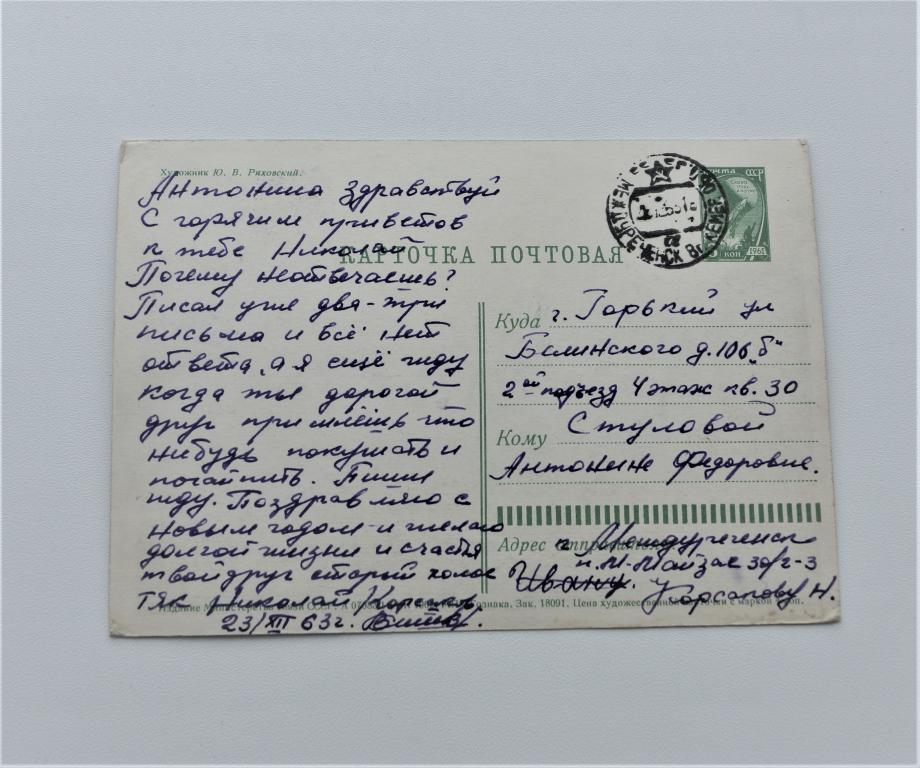 Художник Ю. В. Ряховский.
Антонина здравствуй
С горячим приветов
к тебе Николай
Почему неотвечаешь?
Писал уже два-три
письма и всё нет
ответа, а я ещё жду
когда ты дорогой
друг примлёшь что
нибудь покушать и
почаипить. Пиши
жду. Поздравляю с
новым годом и желаю
долгой жизни и счастья
твой друг старый холос
тяк Николай
23/XII 63 г.
КАРТОЧКА ПОЧТОВАЯ
ПОЧТА СССР
КОП 1961
МЕЖДУРЕЧЕНСК
Куда г. Горький ул
Белинского д. 106 „б"
2ой подъезд 4 этаж кв. 30
Кому Стуловой
Антонине Федоровне.
Адрес отправителя
г. Междуреченск
п. М-Майзас 30/2-3
Ивану. Корсапову Н.
Зак. 18091. Цена художественной с маркой коп.